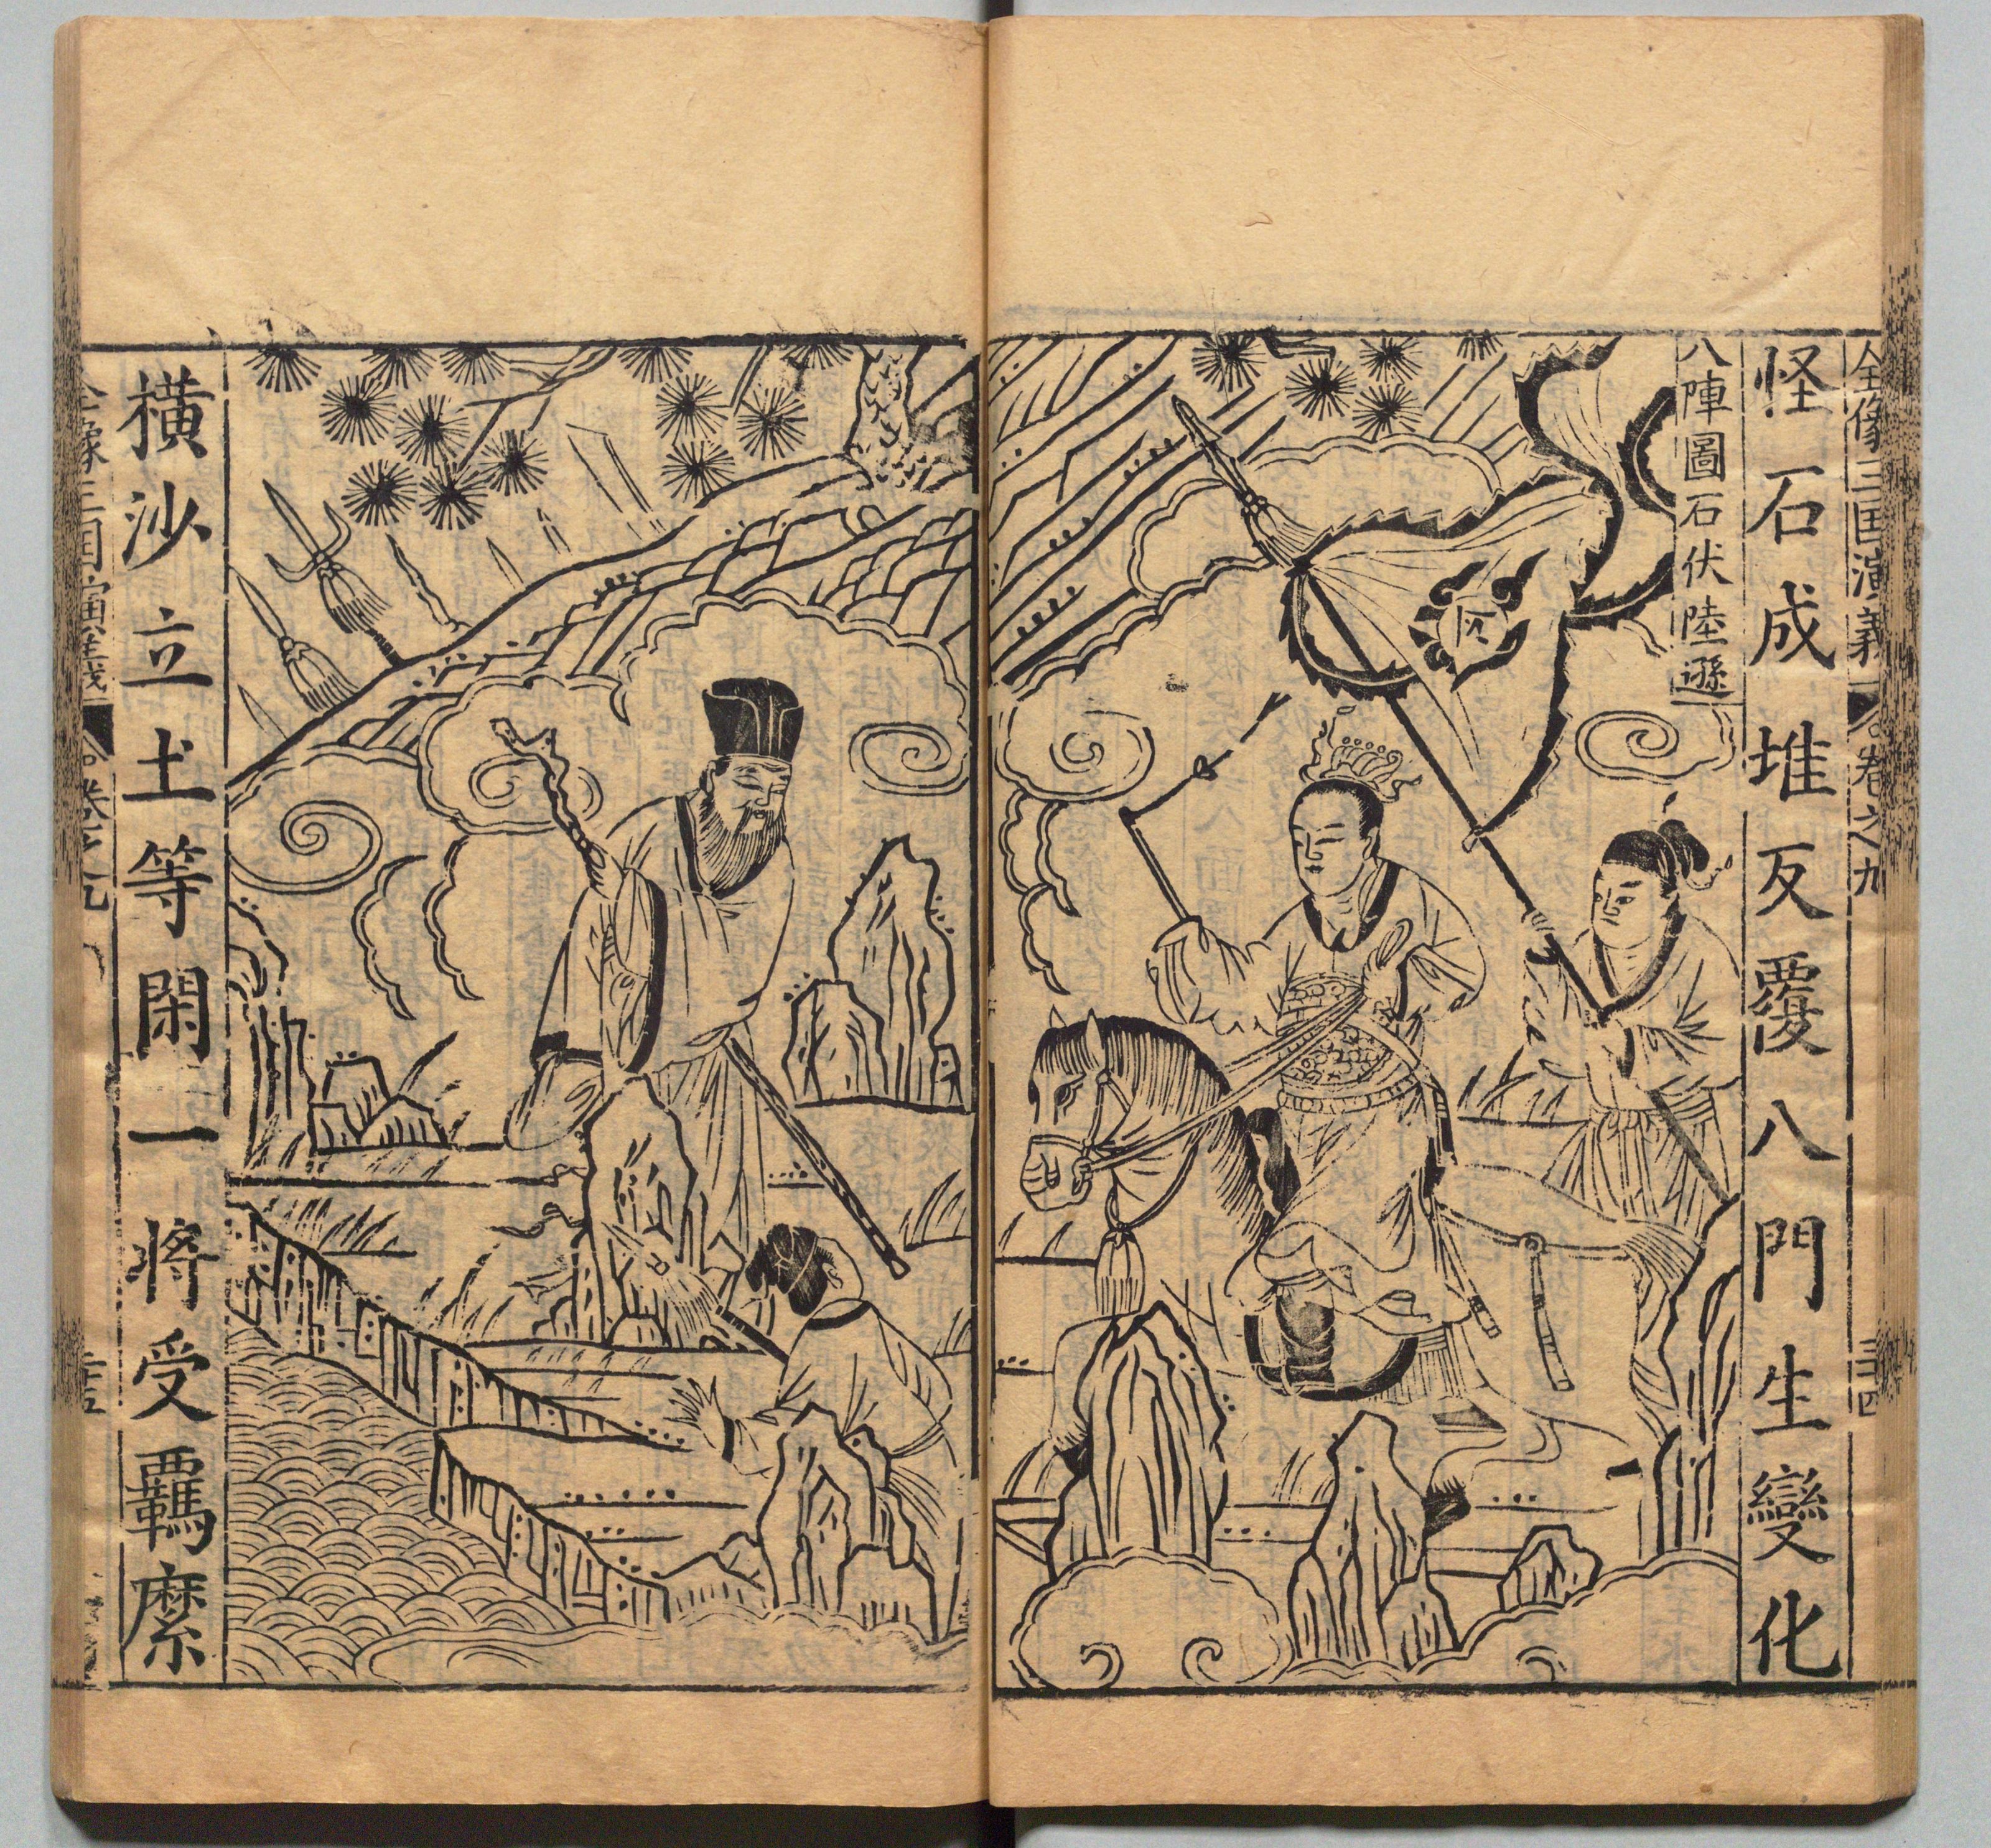 全像三国演義
卷之九
三十四
怪石成堆反覆八門生變化
八陣圖石伏陸遜
橫沙立土等閑一將受羈縻